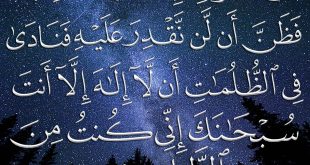 فَظَنَّ أَن لَّن نَّقْدِرَ عَلَيْهِ فَنَادَىٰ
فِى ٱلظُّلُمَٰتِ أَن لَّآ إِلَٰهَ إِلَّآ أَنتَ
سُبْحَٰنَكَ إِنِّى كُنتُ مِنَ